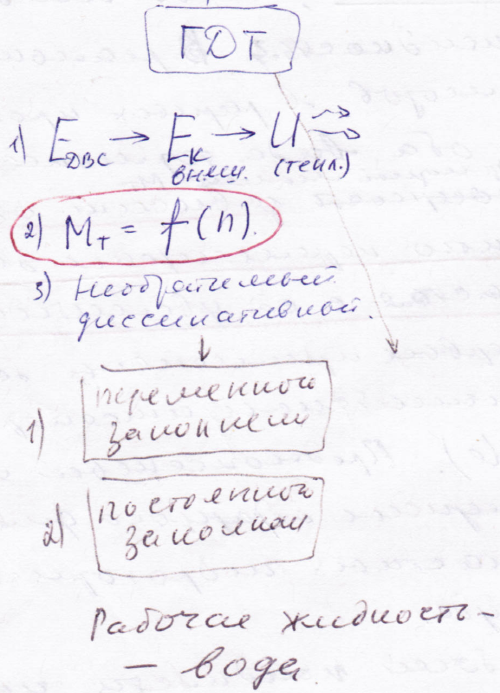 ГДТ
1) E ДВС → E к внеш. → U (тепл.)
2) Mт = f(n).
3) Необратимый
диссипативной.
1) переменной
заполнени
2) постоянной
заполнен
Рабочая жидкость -
- вода